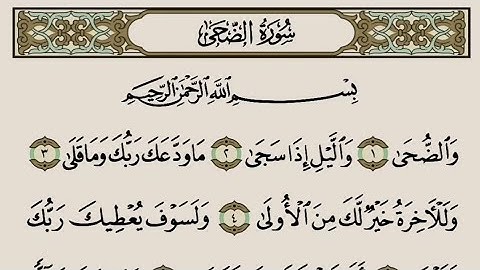 سُورَةُ الضُّحَىٰ
بِسْمِ اللَّهِ الرَّحْمَٰنِ الرَّحِيمِ
وَالضُّحَىٰ ١ وَالَّيْلِ إِذَا سَجَىٰ ٢ مَا وَدَّعَكَ رَبُّكَ وَمَا قَلَىٰ ٣
وَلَلْآخِرَةُ خَيْرٌ لَّكَ مِنَ الْأُولَىٰ ٤ وَلَسَوْفَ يُعْطِيكَ رَبُّكَ